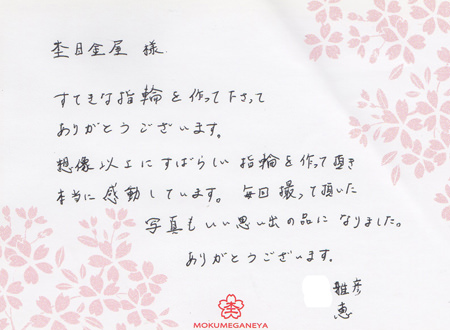 杢目金屋 様
すてきな指輪を作って下さって
ありがとうございます。
想像以上にすばらしい指輪を作って頂き
本当に感動しています。毎回撮って頂いた
写真もいい思い出の品になりました。
ありがとうございます。
雅彦
恵
MOKUMEGANEYA